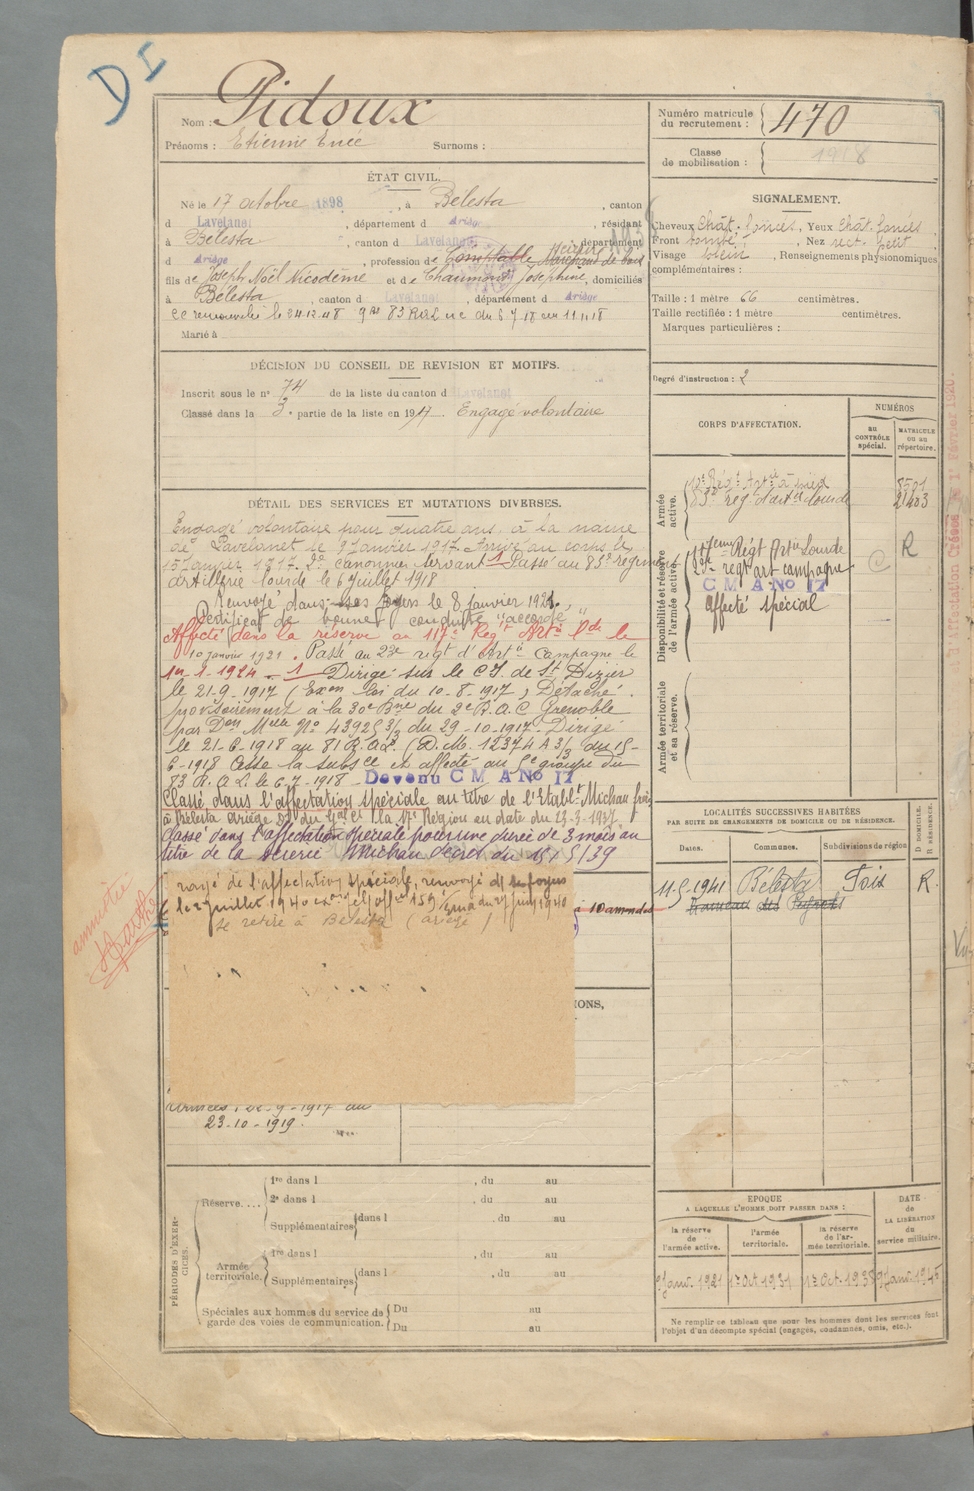 D I
Nom : Pidoux
Prénoms : Etienne Enée Surnoms :
Numéro matricule du recrutement : 470
Classe de mobilisation : 1918
ÉTAT CIVIL.
Né le 17 octobre 1898, à Bélesta, canton
d Lavelanet, département d Ariège, résidant
à Bélesta, canton d Lavelanet, département
d Ariège, profession de Comptable Marchand de bois
fils de Joseph Noël Nicodème et de Chaumont Joséphine, domiciliés
à Bélesta, canton d Lavelanet, département d Ariège
cc renouvelée le 24-12-48 83 RAL du 6.7.18 au 11.11.18
Marié à
SIGNALEMENT.
Cheveux Chât. foncés, Yeux Chât. foncés,
Front bombé, Nez rect. petit.
Visage plein, Renseignements physionomiques
complémentaires :
Taille : 1 mètre 66 centimètres.
Taille rectifiée : 1 mètre centimètres.
Marques particulières :
Degré d'instruction : 2
DÉCISION DU CONSEIL DE REVISION ET MOTIFS.
Inscrit sous le n° 74 de la liste du canton d Lavelanet
Classé dans la 3e partie de la liste en 1917. Engagé volontaire
CORPS D'AFFECTATION.
NUMÉROS
au CONTRÔLE spécial.
MATRICULE ou au répertoire.
Armée active.
Régt Artie à pied 8501
83e rég. d'artie lourde 21403
Disponibilité et réserve de l'armée active.
117eme Régt Artie Lourde C R
23e régt art campagne
C M A No 17
affecté spécial
Armée territoriale et sa réserve.
DÉTAIL DES SERVICES ET MUTATIONS DIVERSES.
Engagé volontaire pour quatre ans, à la mairie
de Lavelanet le 9 Janvier 1917. Arrivé au corps le
15 Janvier 1917. 2e Canonnier servant 1 Passé au 83e régiment
artillerie lourde le 6 Juillet 1918
Renvoyé dans ses foyers le 8 Janvier 1921.
Certificat de bonne conduite "accordé"
Affecté dans la réserve au 117e Régt Artie Lde le
10 Janvier 1921. Passé au 23e régt d'Artie Campagne le
1er-1-1924 - 1 Dirigé sur le C.I. de St Dizier
le 21-9-1917 (Exon loi du 10-8-1917) Détaché
provisoirement à la 30e Bie du 2e R.A.C Grenoble
par Don Mlle No 43925 3/3 du 29-10-1917. Dirigé
le 21-6-1918 au 81 R.A.L. (D.M. 12374 A 3/3 du 15-
6-1918 Cesse la subsce et affecté au 5e groupe du
83 R.A.L. le 6-7-1918 - Devenu C M A No 17
Classé dans l'affectation spéciale au titre de l'Etablt Michau frères
à Bélesta Ariège du Gal Ct la 17e Région en date du 23-3-1937
Classé dans l'affectation spéciale pour une durée de 3 mois au
titre de la scierie Michau décret du 15/5/39
rayé de l'affectation spéciale, renvoyé ds ses foyers
le 2 juillet 1940 du 27 juin 1940
se retire à Bélesta (ariège)
à 10 amendes
IONS,
22-9-1917 au
23-10-1919.
annoté
LOCALITÉS SUCCESSIVES HABITÉES
PAR SUITE DE CHANGEMENTS DE DOMICILE OU DE RÉSIDENCE.
Dates. Communes. Subdivisions de région D DOMICILE. R RÉSIDENCE.
11.5.1941 Bélesta Foix R.
PÉRIODES D'EXERCICES.
Réserve....
1re dans l , du au
2e dans l , du au
Supplémentaires dans l , du au
Armée territoriale.
1re dans l , du au
Supplémentaires dans l , du au
Spéciales aux hommes du service de garde des voies de communication.
Du au
Du au
EPOQUE
A LAQUELLE L'HOMME DOIT PASSER DANS :
la réserve de l'armée active.
l'armée territoriale.
la réserve de l'armée territoriale.
DATE de LA LIBÉRATION du service militaire.
9 Janv. 1921 1er Oct. 1931 1er Oct. 1938 9 Janv. 1945
Ne remplir ce tableau que pour les hommes dont les services font
l'objet d'un décompte spécial (engagés, condamnés, omis, etc.).